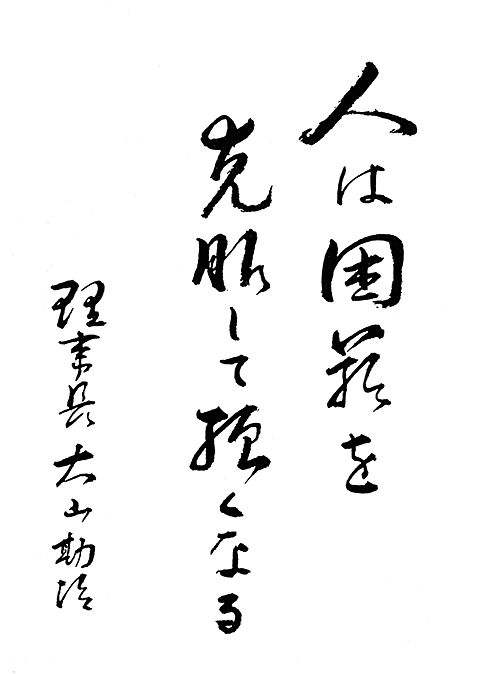 人は困難を
克服して強くなる
理事長 大山勘治